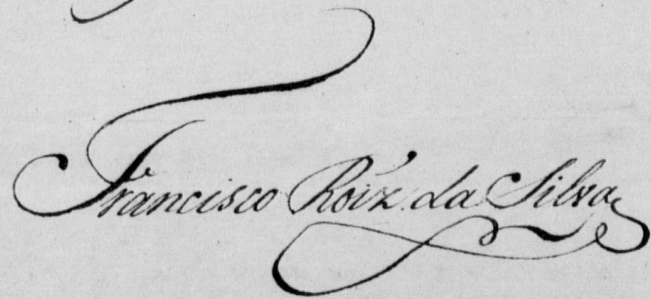 Francisco Roiz da Silva